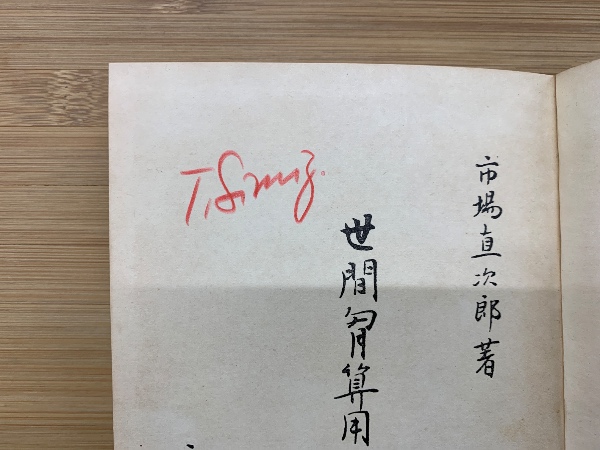 市場直次郎著
世間胷算用